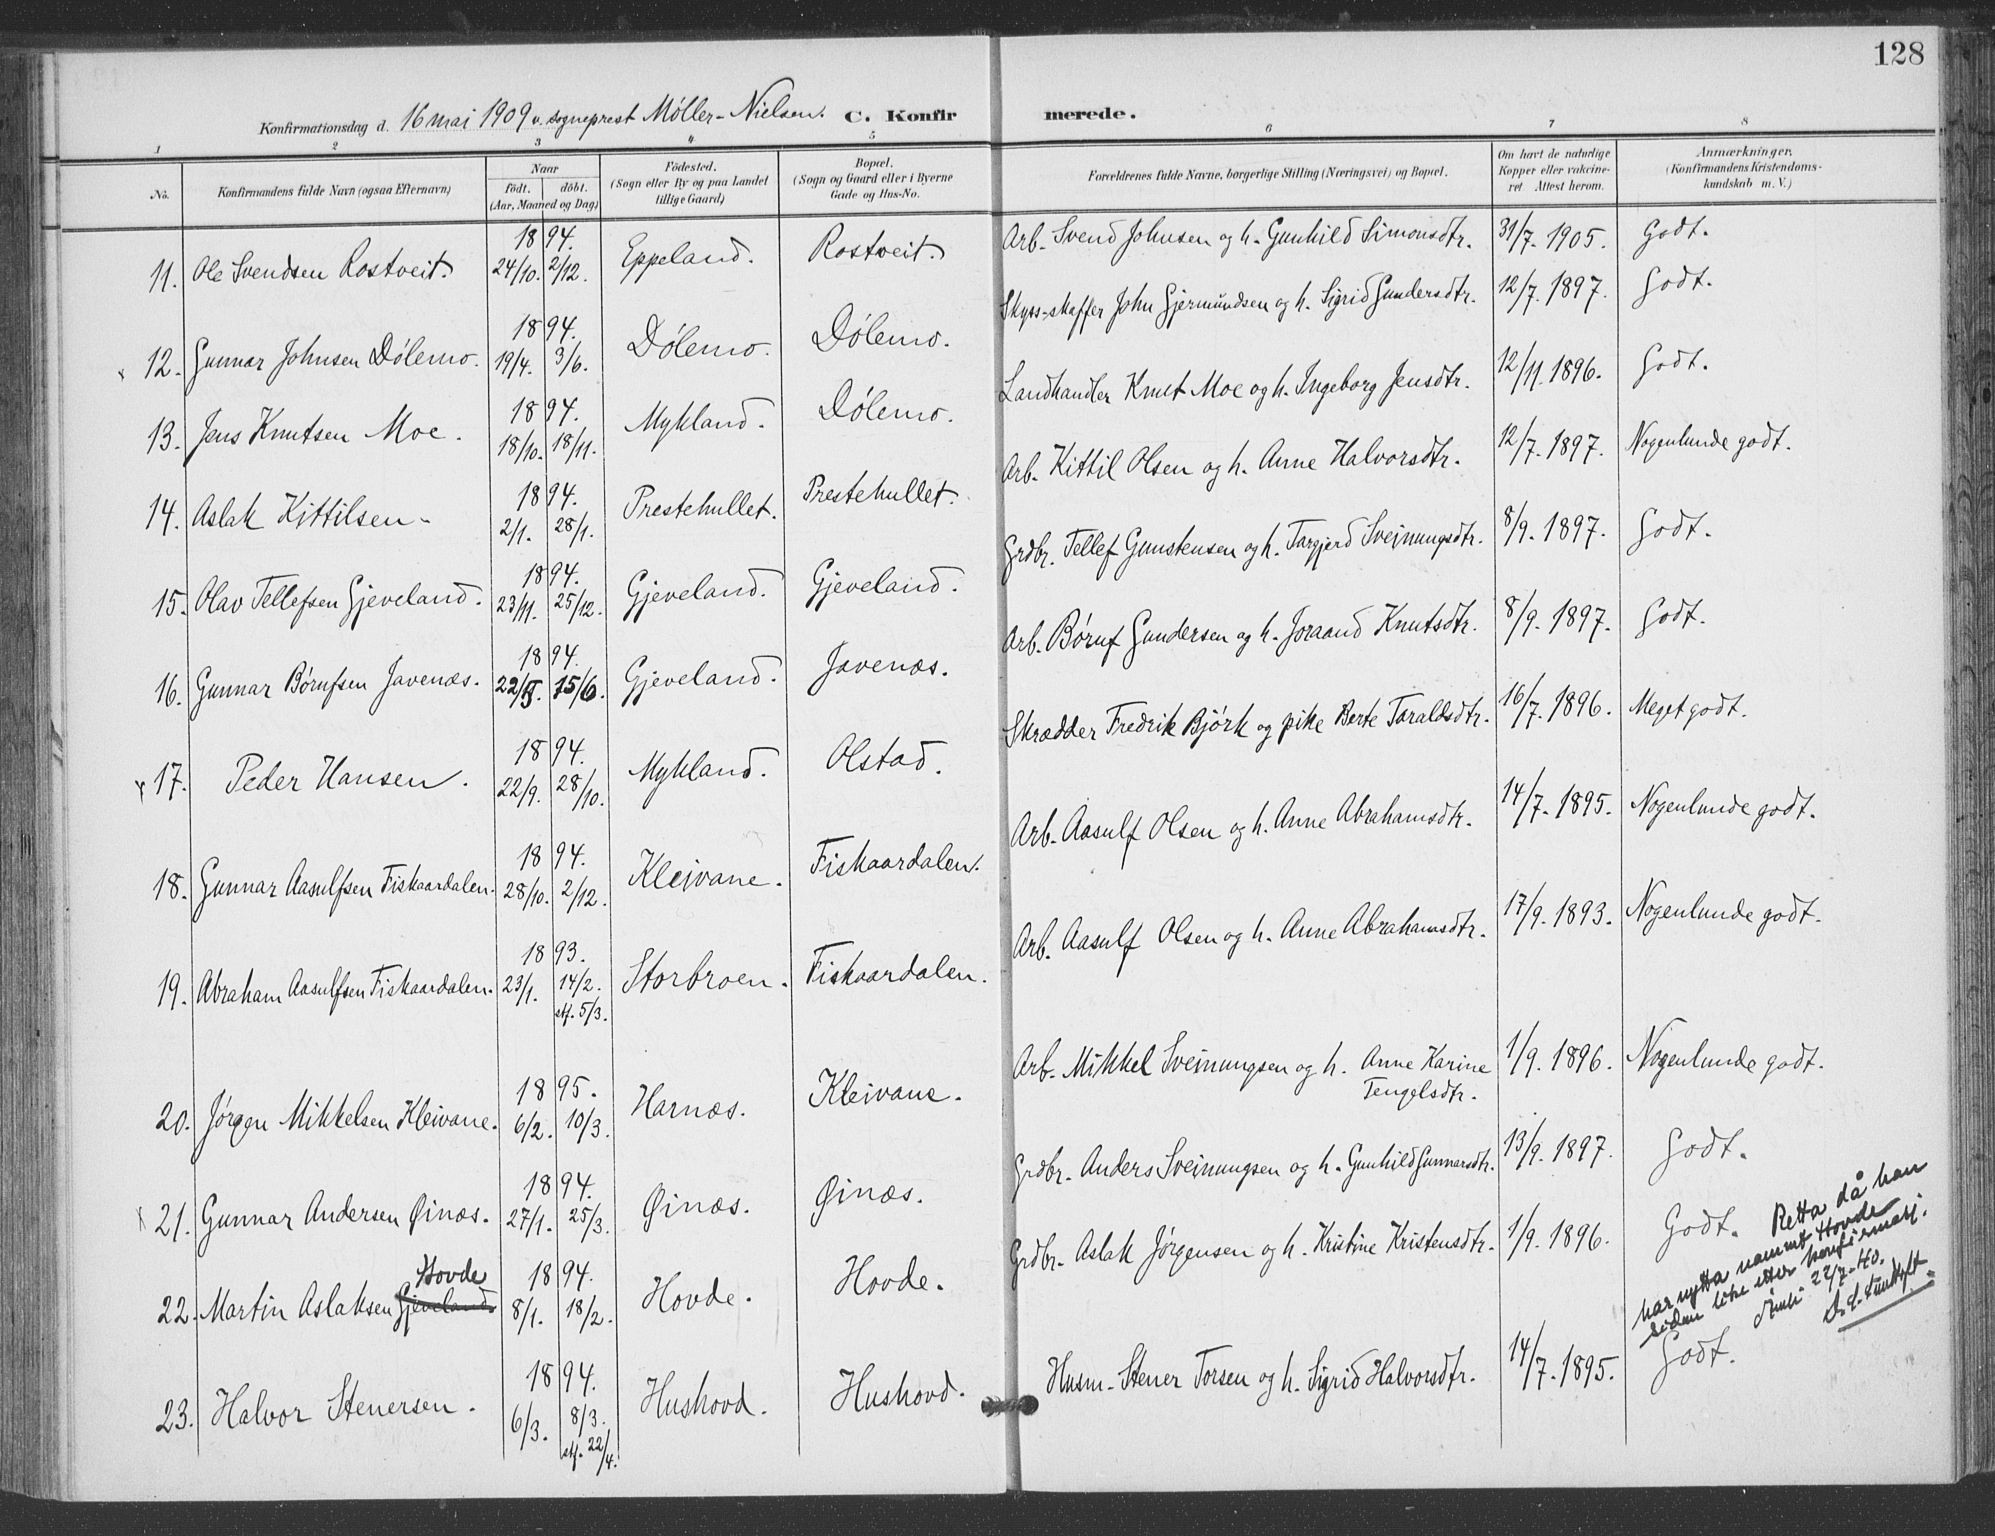 128
Konfirmationsdag d. 16 mai 1909 v. sogneprest Möller-Nielsen. C. Konfirmerede.
1 2 3 4 5 6 7 8
No. Konfirmandens fulde Navn (ogsaa Efternavn) Naar födt. döbt. (Aar, Maaned og Dag) Födested. (Sogn eller By og paa Landet tillige Gaard) Bopæl. (Sogn og Gaard eller i Byerne Gade og Hus-No. Forældrenes fulde Navne, borgerlige Stilling (Næringsvei) og Bopæl. Om havt de naturlige Kopper eller vakcineret. Attest herom. Anmærkninger. (Konfirmandens Kristendomskundskab m. V.)
11. Ole Svendsen Rostveit. 1894. 24/10. 2/12. Eppeland. Rostveit. Arb. Svend Johnsen og h. Gunhild Simonsdtr. 31/7. 1905. Godt.
12. Gunnar Johnsen Dölemo. 1894. 19/4. 3/6. Dölemo. Dölemo. Skyss-skaffer John Gjermundsen og h. Sigrid Gundersdtr. 12/7. 1897. Godt.
13. Jens Knutsen Moe. 1894. 18/10. 18/11. Mykland. Dölemo. Landhandler Knut Moe og h. Ingeborg Jensdtr. 12/11. 1896. Godt.
14. Aslak Kittilsen. 1894. 2/1. 28/1. Prestehullet. Prestehullet. Arb. Kittil Olsen og h. Anne Halvorsdtr. 12/7. 1897. Nogenlunde godt.
15. Olav Tellefsen Gjeveland. 1894. 23/11. 25/12. Gjeveland. Gjeveland. Grdbr. Tellef Gunstensen og h. Targjerd Sveinungsdtr. 8/9. 1897. Godt.
16. Gunnar Börufsen Javenæs. 1894. 22/5. 15/6. Gjeveland. Javenæs. Arb. Böruf Gundersen og h. Joraand Knutsdtr. 8/9. 1897. Godt.
17. Peder Hansen. 1894. 22/9. 28/10. Mykland. Olstad. Skrædder Fredrik Björk og pike Berte Taraldsdtr. 16/7. 1896. Meget godt.
18. Gunnar Aasulfsen Fiskaardalen. 1894. 28/10. 2/12. Kleivane. Fiskaardalen. Arb. Aasulf Olsen og h. Anne Abrahamsdtr. 14/7. 1895. Nogenlunde godt.
19. Abraham Aasulfsen Fiskaardalen. 1893. 23/1. 14/2. stf. 5/3. Storbroen. Fiskaardalen. Arb. Aasulf Olsen og h. Anne Abrahamsdtr. 17/9. 1893. Nogenlunde godt.
20. Jörgen Mikkelsen Kleivane. 1895. 6/2. 10/3. Harnæs. Kleivane. Arb. Mikkel Sveinungsen og h. Anne Karine Tengelsdtr. 1/9. 1896. Nogenlunde godt.
21. Gunnar Andersen Øinæs. 1894. 27/1. 25/3. Øinæs. Øinæs. Grdbr. Anders Sveinungsen og h. Gunhild Gunnarsdtr. 13/9. 1897. Godt.
22. Martin Aslaksen Gjeveland. Hovde 1894. 8/1. 18/2. Hovde. Hovde. Grdbr. Aslak Jörgensen og h. Kristine Kristensdtr. 1/9. 1896. Godt.
Retta då han
har nytta namnet Hovde
sidan like etter konfirmasj.
Åmli 22/7-40.
23. Halvor Stenersen. 1894. 6/3. 8/3. stf. 22/4. Hushovd. Hushovd. Husm. Stener Torsen og h. Sigrid Halvorsdtr. 14/7. 1895. Godt.